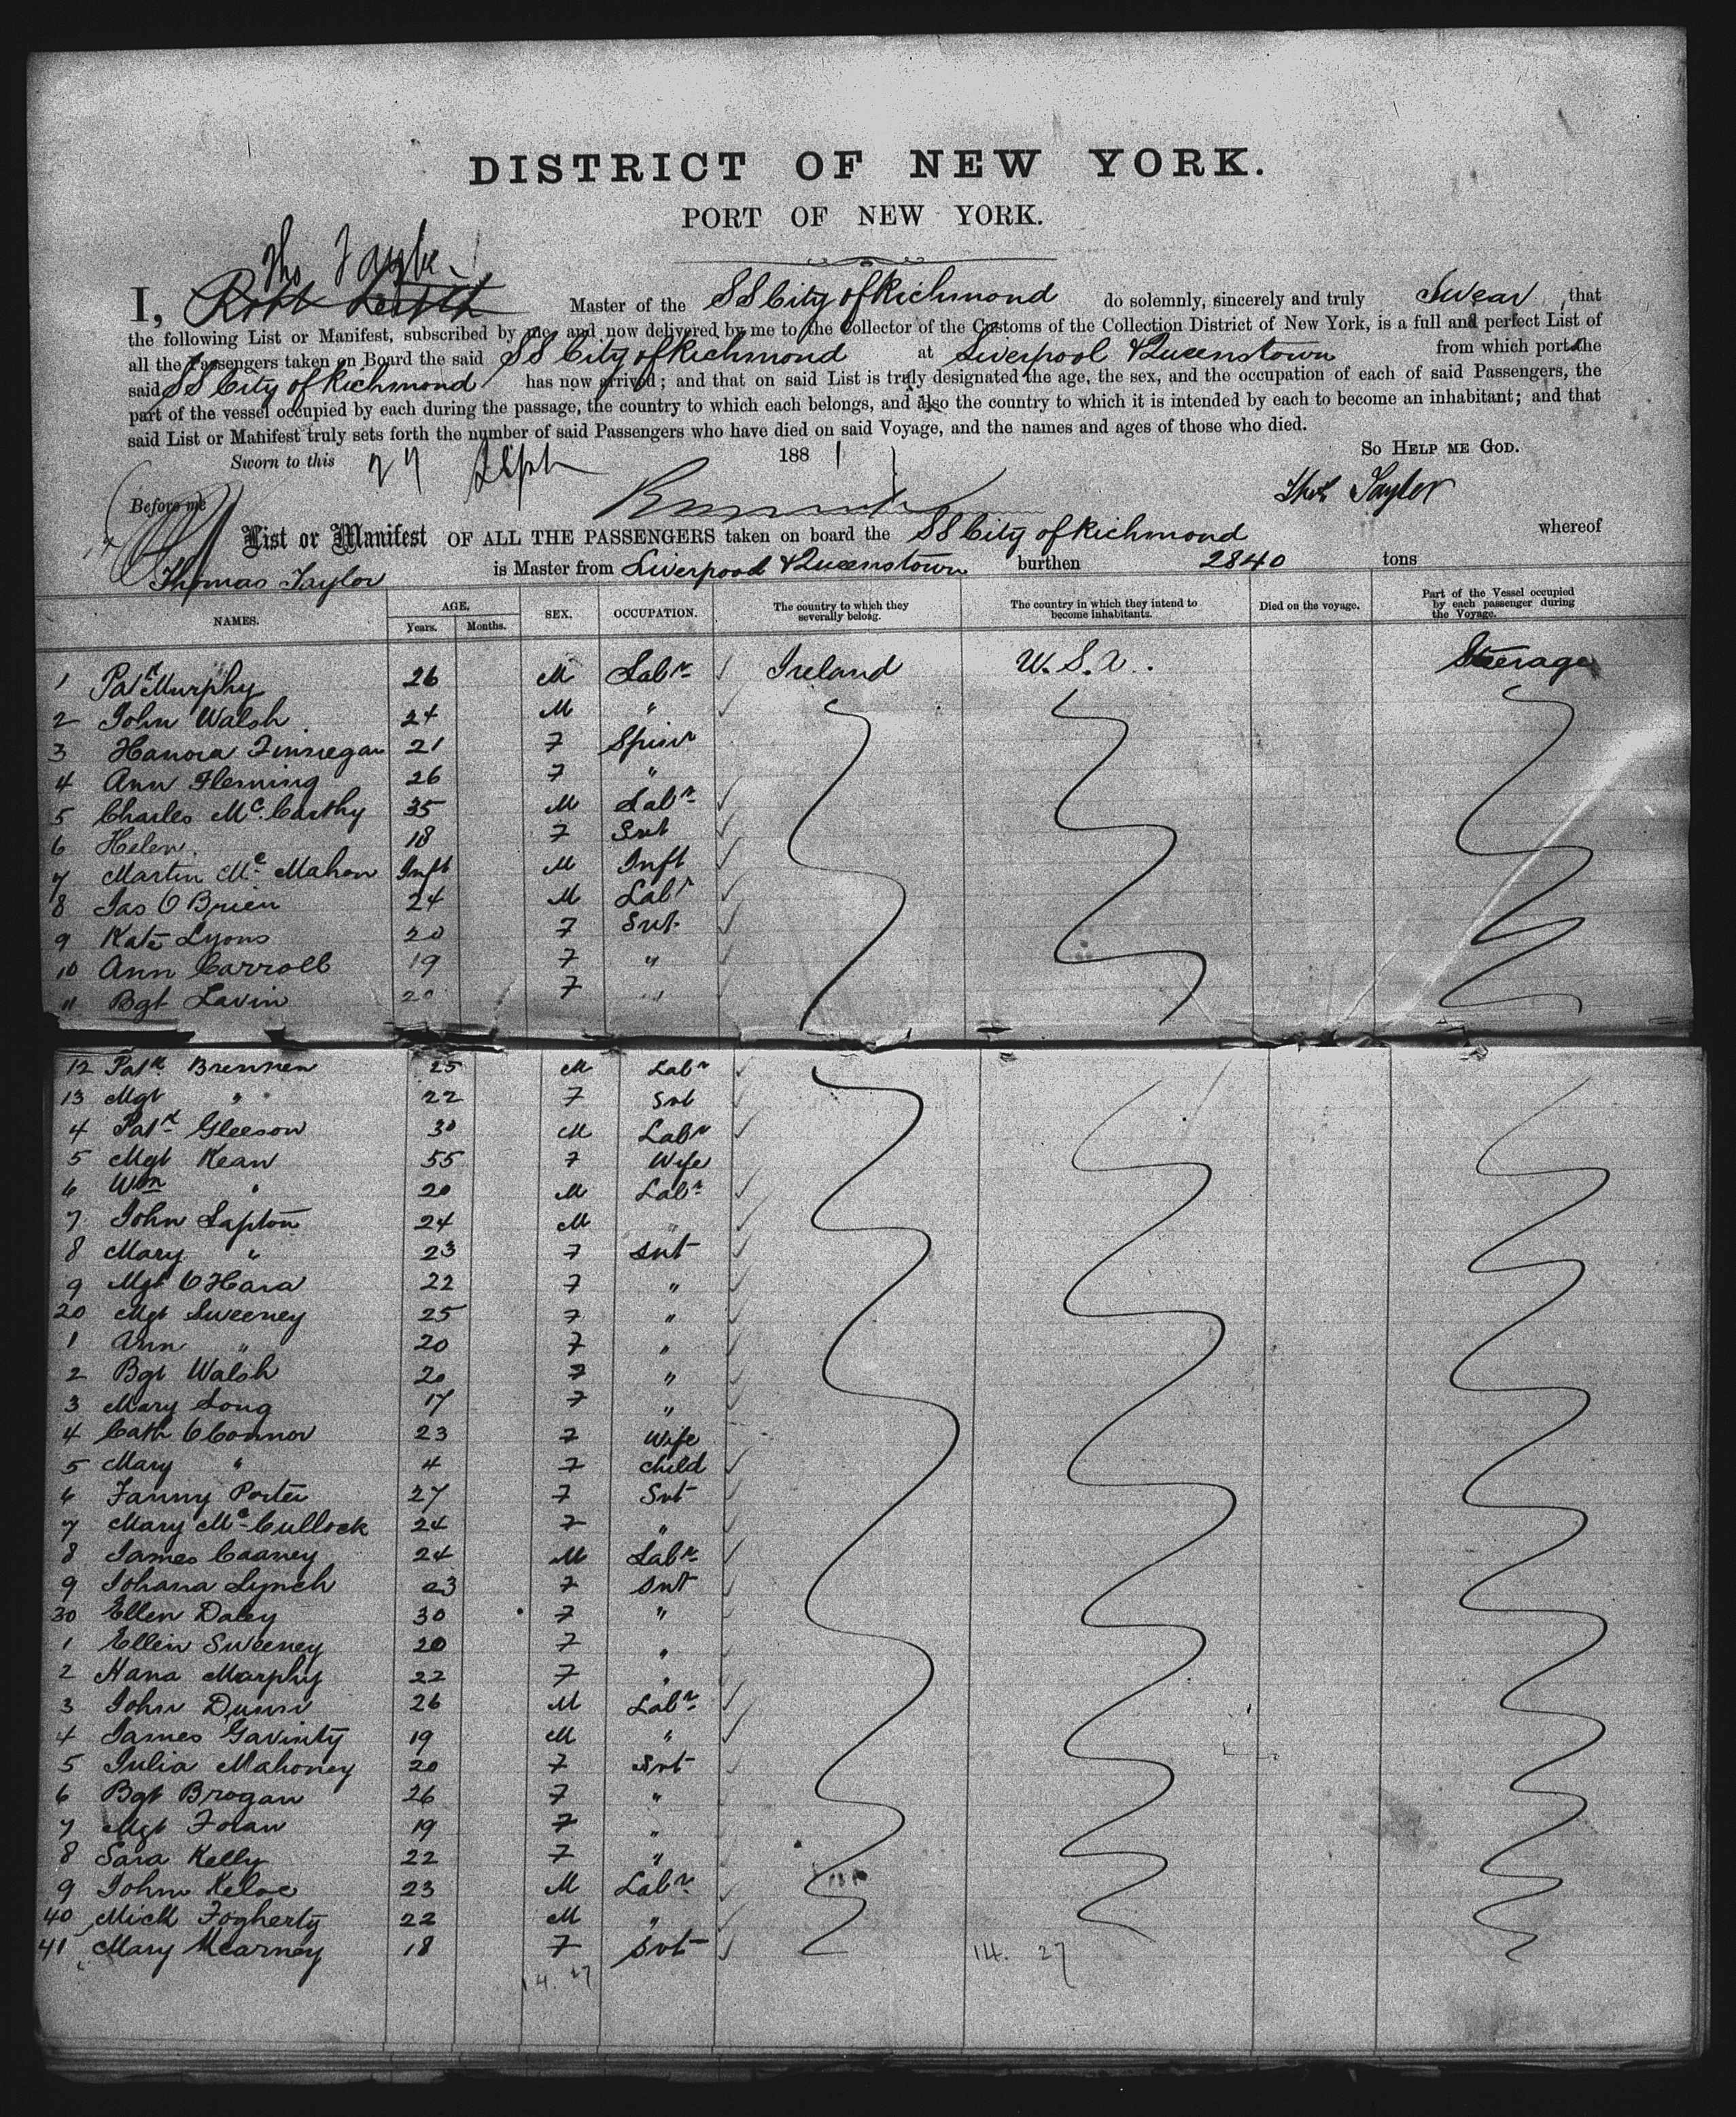 DISTRICT OF NEW YORK.
PORT OF NEW YORK.
Thos Taylor
I, Robt Leitch Master of the SS City of Richmond do solemnly, sincerely and truly Swear that
the following List or Manifest, subscribed by me, and now delivered by me to the Collector of the Customs of the Collection District of New York, is a full and perfect List of
all the Passengers taken on Board the said SS City of Richmond at Liverpool & Queenstown from which port the
said SS City of Richmond has now arrived; and that on said List is truly designated the age, the sex, and the occupation of each of said Passengers, the
part of the vessel occupied by each during the passage, the country to which each belongs, and also the country to which it is intended by each to become an inhabitant; and that
said List or Manifest truly sets forth the number of said Passengers who have died on said Voyage, and the names and ages of those who died.
Sworn to this 27 Sept 1881 So HELP ME GOD.
Before me Thos Taylor
List or Manifest OF ALL THE PASSENGERS taken on board the SS City of Richmond whereof
Thomas Taylor is Master from Liverpool & Queenstown burthen 2840 tons
NAMES. AGE, Years. Months. SEX. OCCUPATION. The country to which they severally belong. The country in which they intend to become inhabitants. Died on the voyage. Part of the Vessel occupied by each passenger during the Voyage.
1 Patk Murphy 26 M Labr Ireland U.S.A. Steerage
2 John Walsh 24 M "
3 Hanora Finnegan 21 F Spinr
4 Ann Fleming 26 F "
5 Charles Mc Carthy 35 M Labr
6 Helen 18 F Svt
7 Martin Mc Mahon Inft M Inft
8 Jas O Brien 24 M Labr
9 Kate Lyons 20 F Svt
10 Ann Carroll 19 F "
11 Bgt Lavin 20 F "
12 Patk Brennen 25 M Labr
13 Mgt " 22 F Svt
4 Patk Gleeson 30 M Labr
5 Mgt Kean 55 F Wife
6 Wm " 20 M Labr
7 John Lapton 24 M "
8 Mary " 23 F Svt
9 Mgt O Hara 22 F "
20 Mgt Sweeney 25 F "
1 Ann " 20 F "
2 Bgt Walsh 20 F "
3 Mary Long 17 F "
4 Cath O Connor 23 F Wife
5 Mary " 4 F Child
6 Fanny Porter 27 F Svt
7 Mary Mc Cullock 24 F "
8 James Caaney 24 M Labr
9 Johana Lynch 23 F Svt
30 Ellen Daley 30 F "
1 Ellen Sweeney 20 F "
2 Hana Murphy 22 F "
3 John Dunn 26 M Labr
4 James Gavinty 19 M "
5 Julia Mahoney 20 F Svt
6 Bgt Brogan 26 F "
7 Mgt Foran 19 F "
8 Sara Kelly 22 F "
9 John Keloe 23 M Labr
40 Mich Fogherty 22 M "
41 Mary Mcarney 18 F Svt
14. 27 14. 27